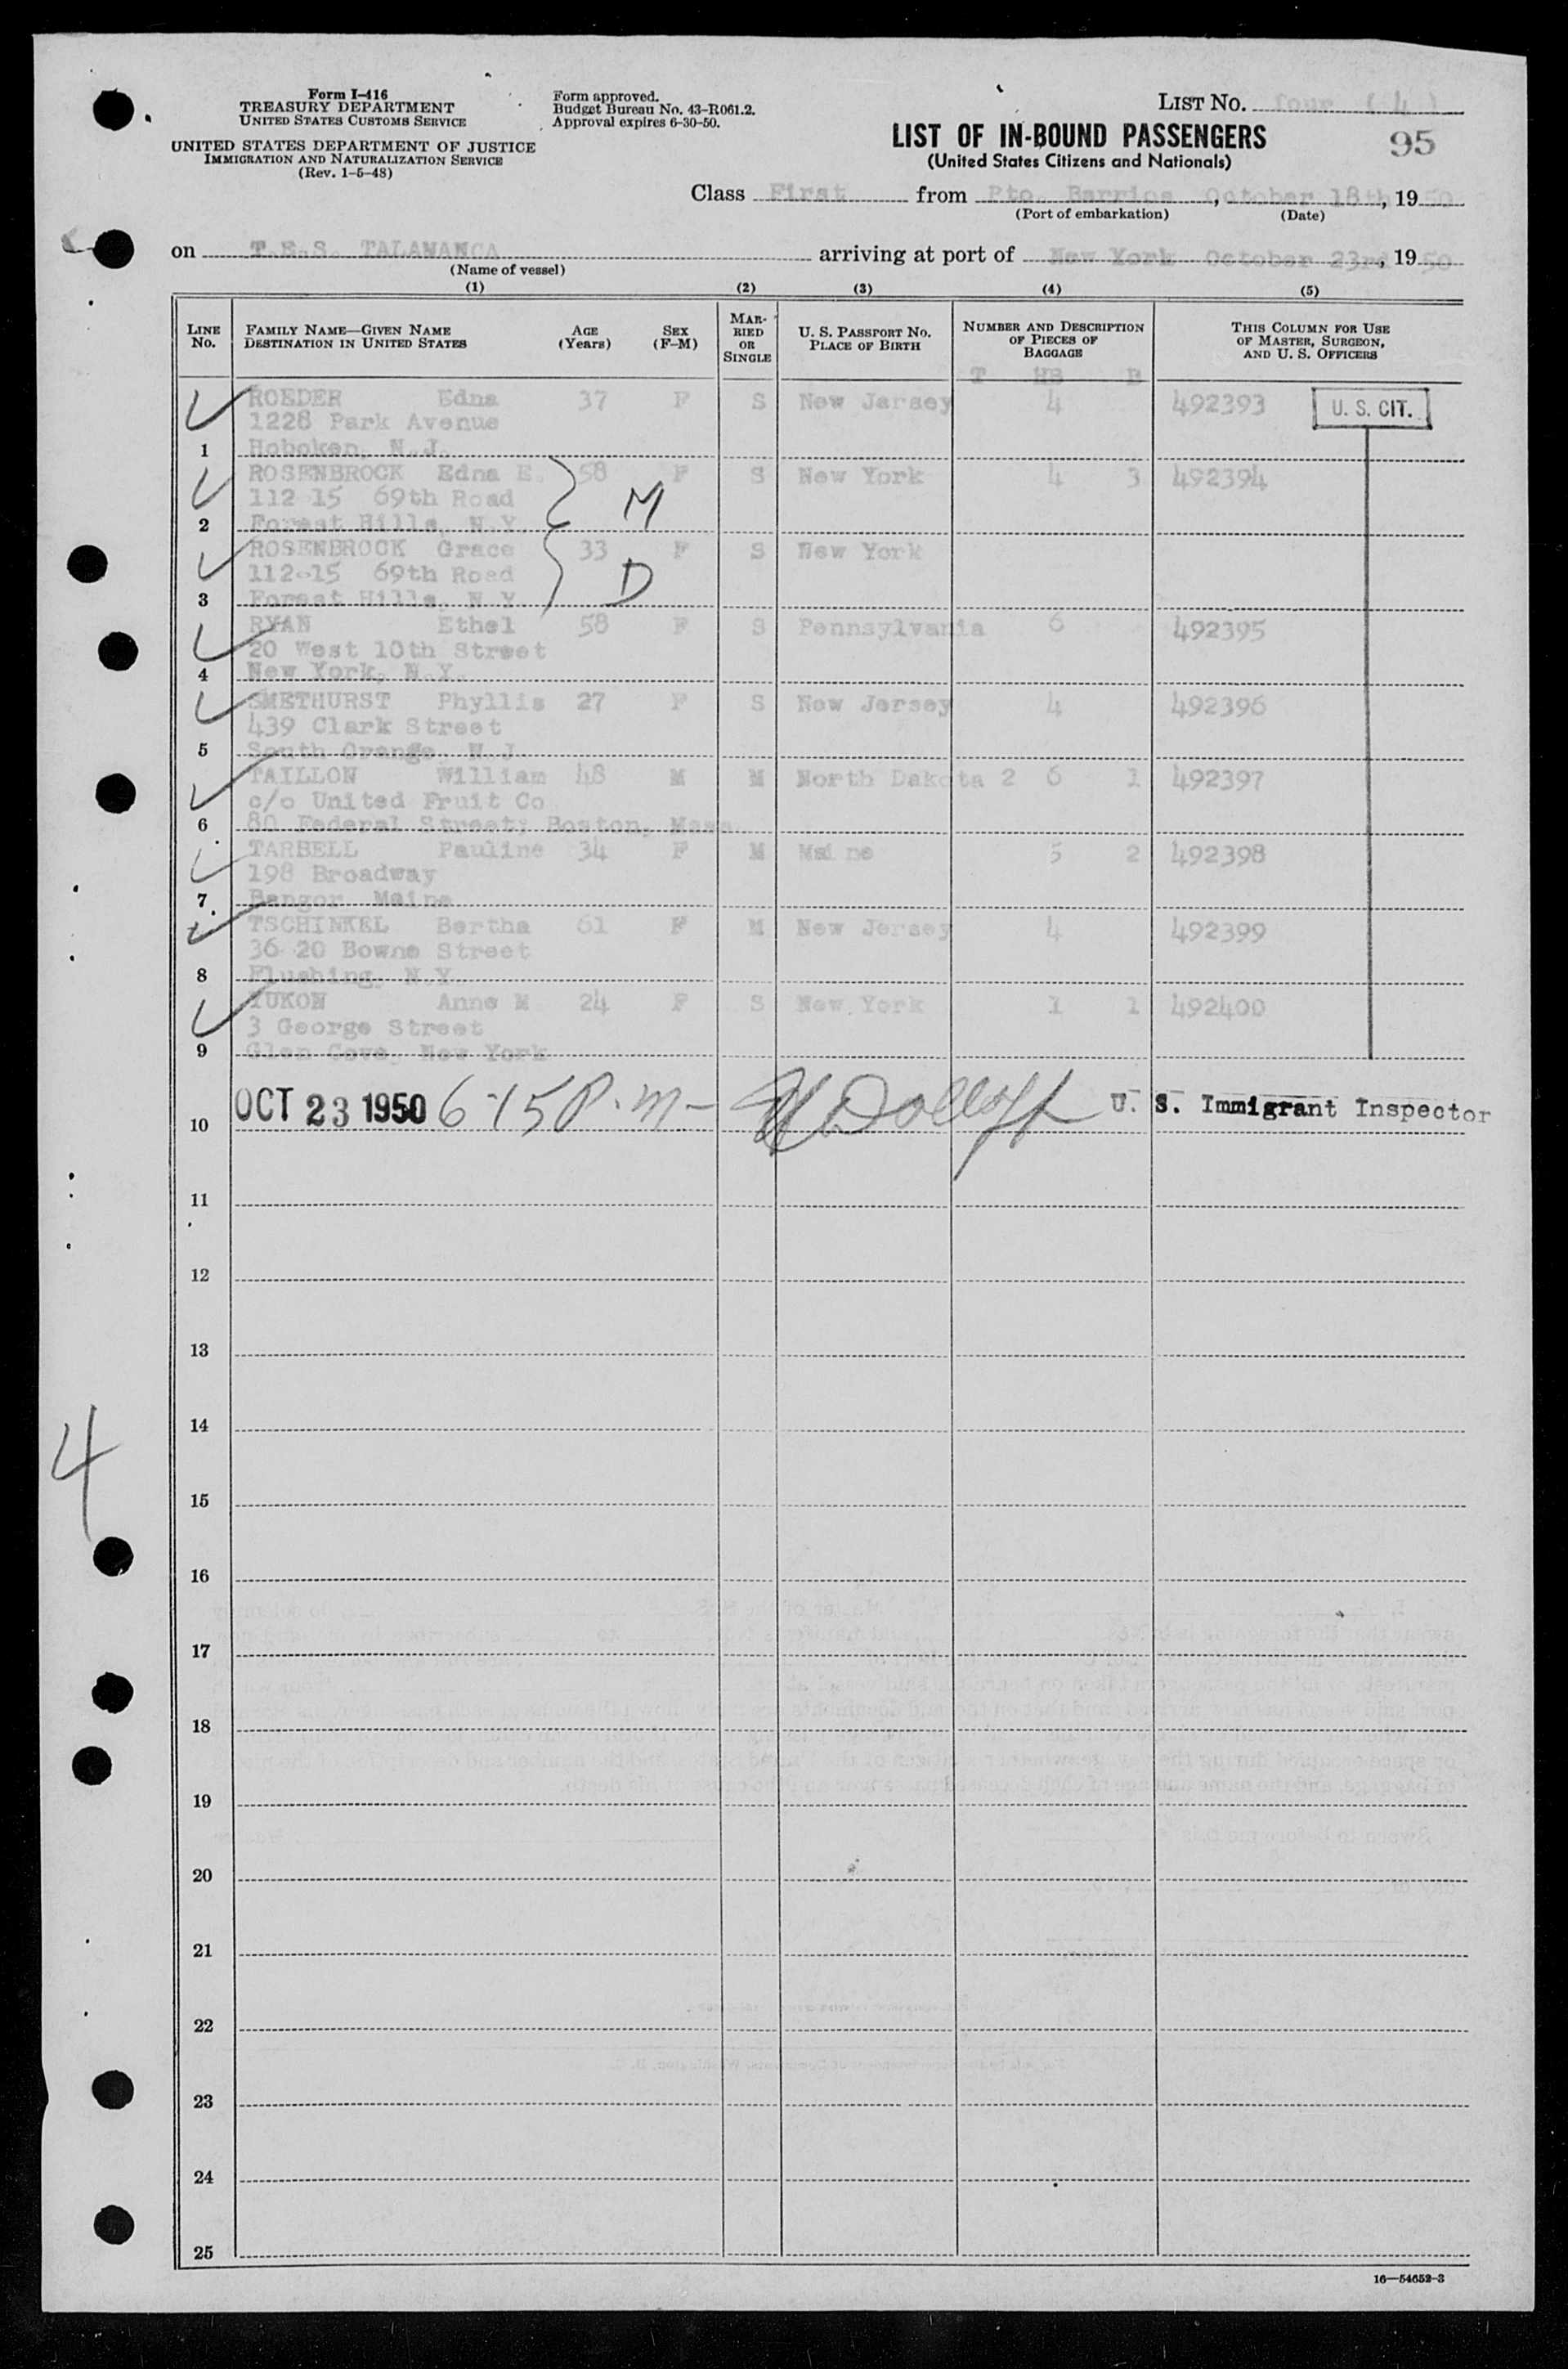 Form I-416
TREASURY DEPARTMENT
UNITED STATES CUSTOMS SERVICE
UNITED STATES DEPARTMENT OF JUSTICE
IMMIGRATION AND NATURALIZATION SERVICE
(Rev. 1-5-48)
Form approved.
Budget Bureau No. 43-R061.2.
Approval expires 6-30-50.
LIST NO. four ( 4 )
LIST OF IN-BOUND PASSENGERS
95
(United States Citizens and Nationals)
Class First from Pto. Barrios, October 18th, 1950
(Port of embarkation) (Date)
on T.E.S. TALAMANCA arriving at port of New York October 23rd, 1950
(Name of vessel)
(1) (2) (3) (4) (5)
LINE No. FAMILY NAME—GIVEN NAME DESTINATION IN UNITED STATES AGE (Years) SEX (F-M) MARRIED OR SINGLE U. S. PASSPORT NO. PLACE OF BIRTH NUMBER AND DESCRIPTION OF PIECES OF BAGGAGE THIS COLUMN FOR USE OF MASTER, SURGEON, AND U. S. OFFICERS
T HB B
ROEDER Edna 37 F S New Jersey 4 492393 U. S. CIT.
1228 Park Avenue
1 Hoboken, N.J.
ROSENBROCK Edna E. 58 F S New York 4 3 492394
112 15 69th Road M
2 Forest Hills, N.Y.
ROSENBROCK Grace 33 F S New York
112-15 69th Road D
3 Forest Hills, N Y
RYAN Ethel 58 F S Pennsylvania 6 492395
20 West 10th Street
4 New York, N.Y.
SMETHURST Phyllis 27 F S New Jersey 4 492396
439 Clark Street
5 South Orange, N J
TAILLON William 48 M M North Dakota 2 6 1 492397
c/o United Fruit Co
6 80 Federal Street; Boston, Mass
TARBELL Pauline 34 F M Maine 5 2 492398
198 Broadway
7 Bangor Maine
TSCHINKEL Bertha 61 F M New Jersey 4 492399
36-20 Bowne Street
8 Flushing, N.Y.
YUKON Anne M 24 F S New York 1 1 492400
3 George Street
9 Glen Cove, New York
10 OCT 23 1950 6-15 P.m- U. S. Immigrant Inspector
11
12
13
14
4
15
16
17
18
19
20
21
22
23
24
25
16—54652-3